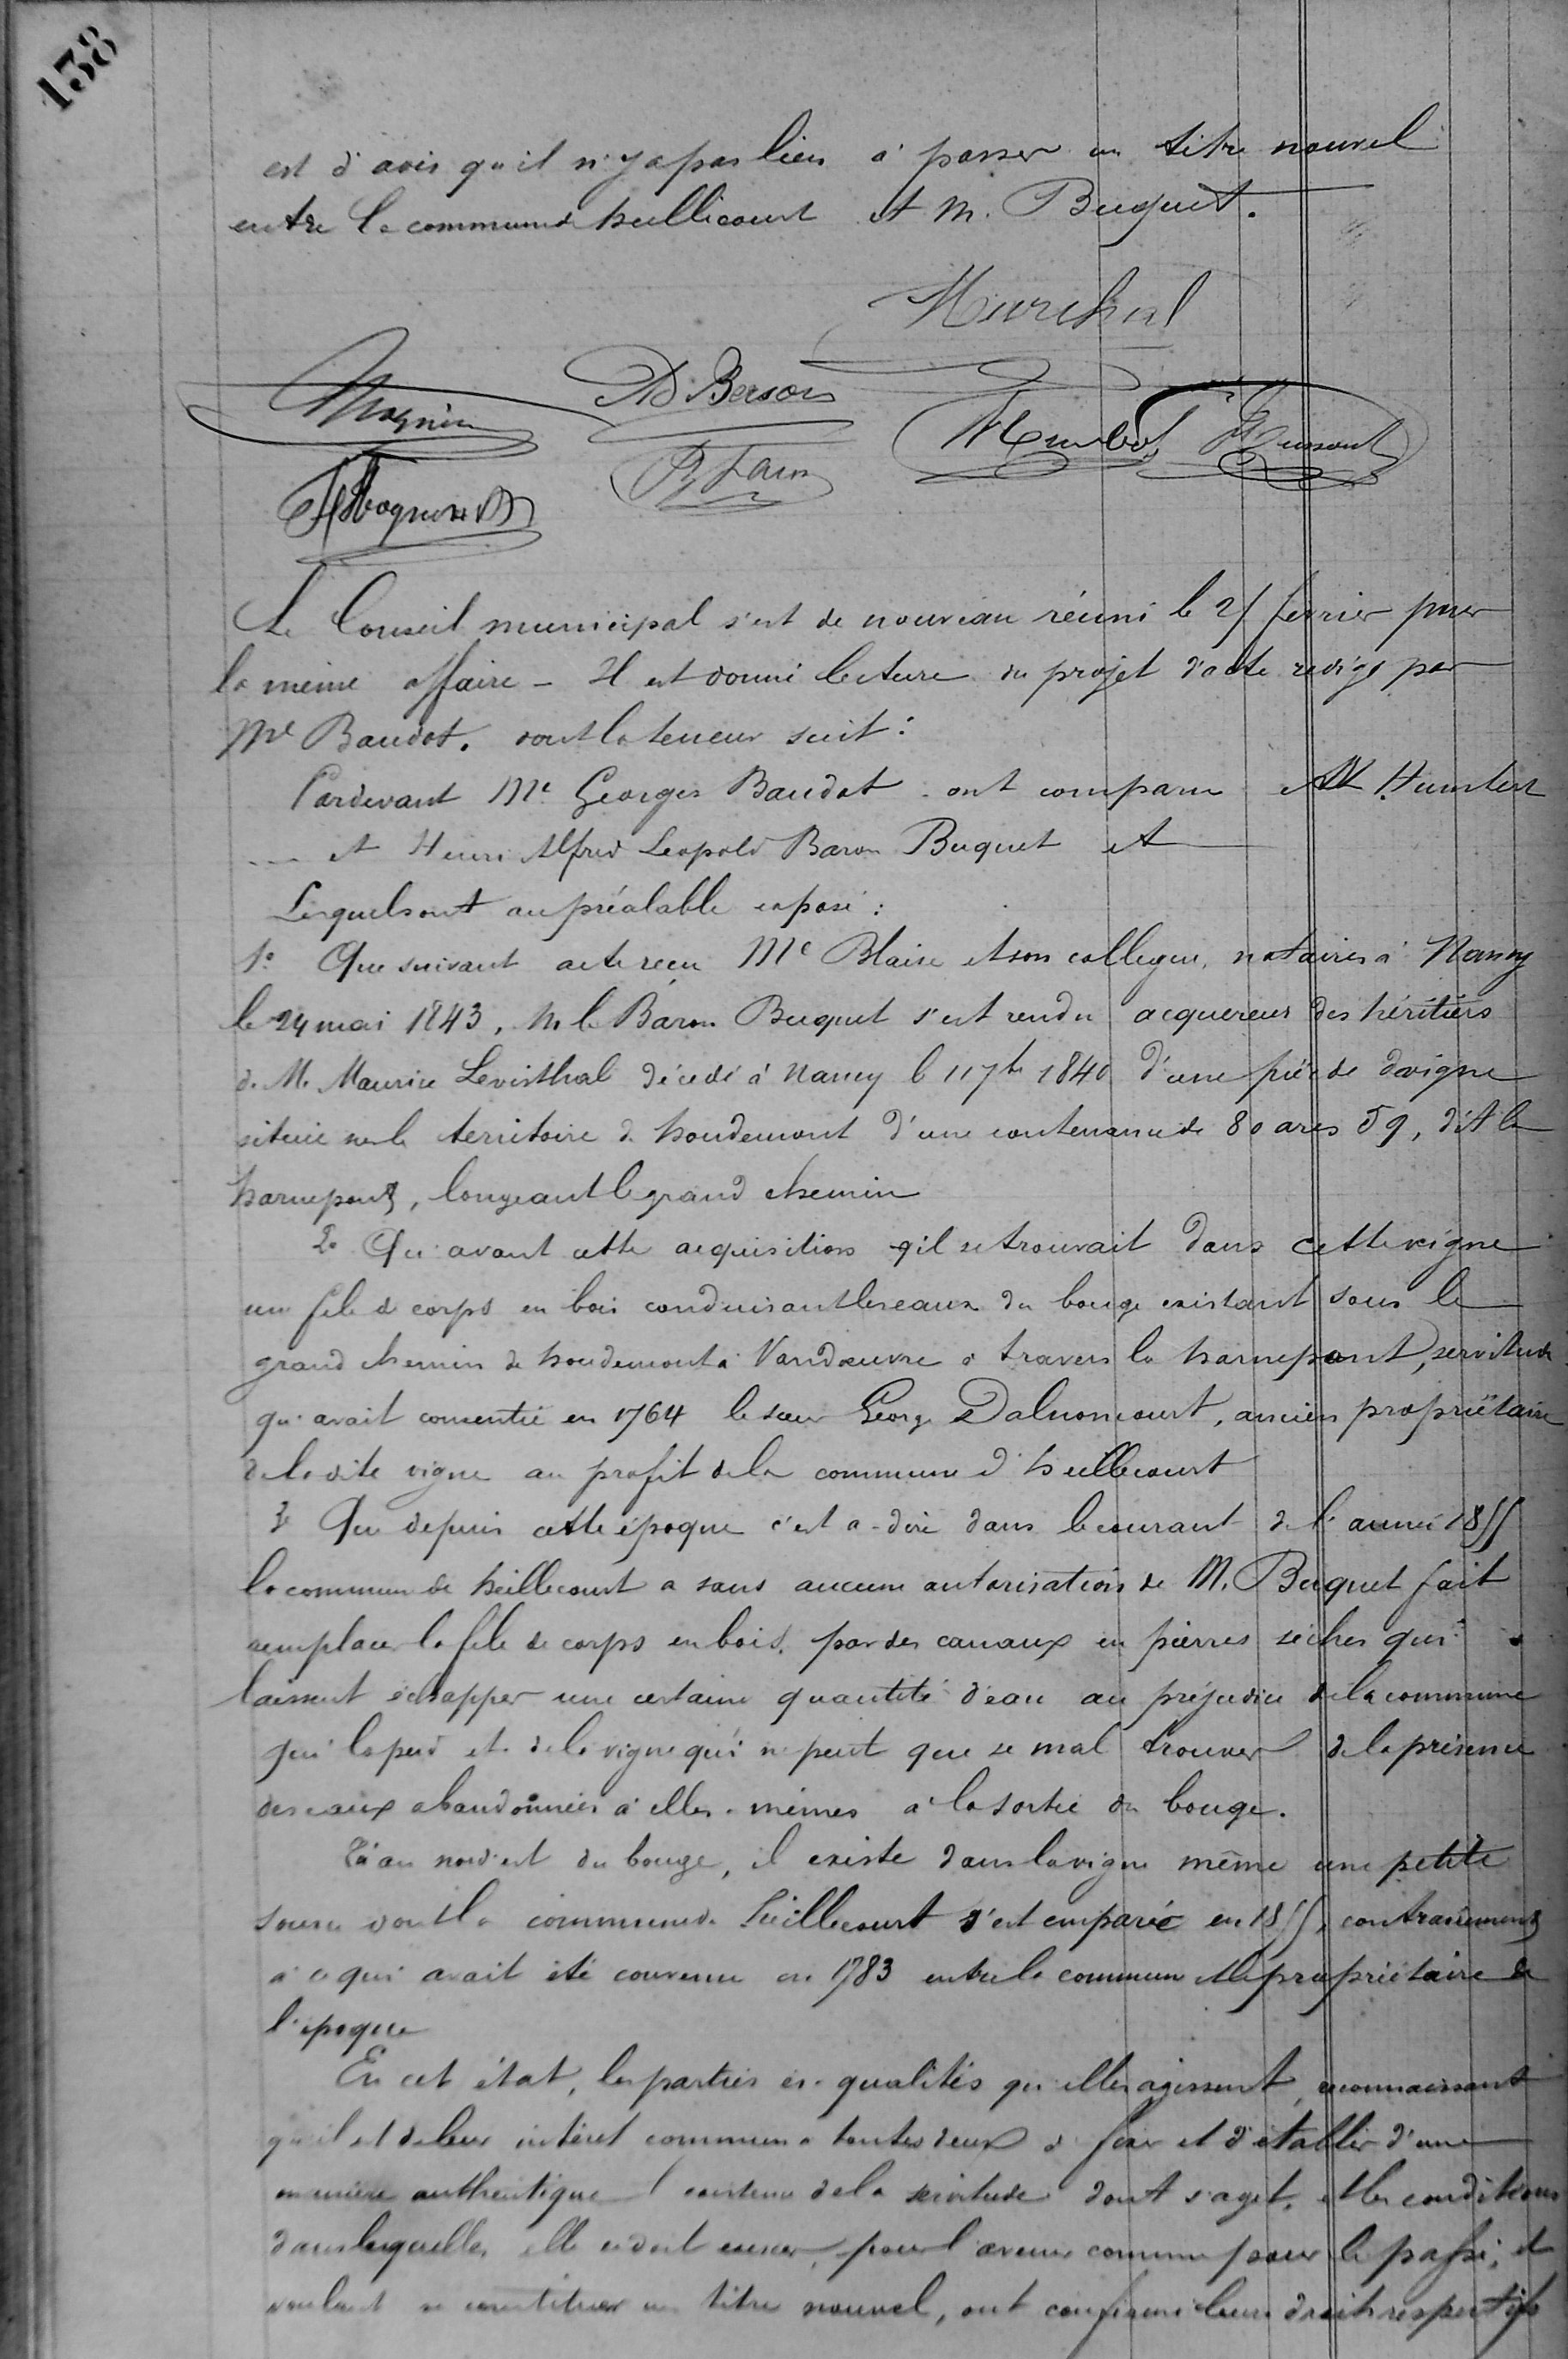 138
est d'avis qu'il n'y a pas lieu à passer un titre nouvel
entre la commune de heillecourt et M. Buquet.
Marchal
Magnin
Ad Berson
Humbert
F. Magnin
Le Conseil municipal s'est de nouveau réuni le 25 février pour
la même affaire - Il est donné lecture du projet d'acte redigé par
Me Baudot. dont la teneur suit :
Pardevant Me Georges Baudot ont comparu MM. Humbert
... et Henri Alfred Leopold Baron Buquet et
Lesquels ont au préalable exposé :
1º Que suivant acte reçu Me Blaise et son collegue, notaires à Nancy
le 24 mai 1843, M le Baron Buquet s'est rendu acquereur des héritiers
de M. Maurice Levisthal décédé à Nancy le 11 7bre 1840 d'une pièce de vigne
située sur le territoire de houdemont d'une contenance de 80 ares 59, dit la
harnepont, longeant le grand chemin
2º Qu'avant cette acquisition qil se trouvait dans cette vigne
un file de corps en bois conduisant les eaux du bouge existant sous le
grand chemin de houdemont à Vandœuvre à travers la harnepont, servitude
qu'avait consentie en 1764 le sieur George Dalnoncourt, ancien propriétaire
de la dite vigne au profit de la commune d'heillecourt
3º Que depuis cette époque c'est a-dire dans le courant de l'année 1855
la commune de heillecourt a sans aucune autorisation de M. Buquet fait
remplacer la file de corps en bois, par des canaux en pierres sèches qui
laissent échapper une certaine quantité d'eau au préjudice de la commune
qui la perd et de la vigne qui ne peut que se mal trouver de la présence
des eaux abandonnées à elles-mêmes à la sortie du bouge.
Qu'au nord est du bouge, il existe dans la vigne même une petite
source dont la commune de heillecourt s'est emparée en 1855, contrairement
à ce qui avait été convenu en 1783 entre la commune et le propriétaire de
l'époque
En cet état, les parties ès-qualités qu'elles agissent, reconnaissant
qu'il est de leur intéret commun a toutes deux de fixer et d'établir d'une
manière authentique l'existence de la servitude dont s'agit, et les conditions
dans lesquelles elle doit exister, pour l'avenir comme pour le passé, et
voulant se constituer un titre nouvel, ont confirmé leurs droits respectifs